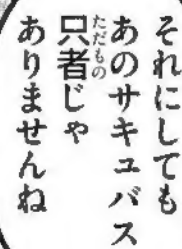 それにしても
あのサキュバス
只者じゃ
ありませんね
ただもの